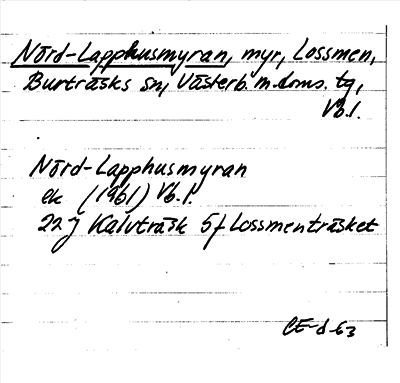 Nörd-Lapphusmyran, myr, Lossmen,
Burträsks sn, Västerb. m. doms. tg,
Vb. l.
Nörd-Lapphusmyran
ek (1961) Vb. l.
22 j Kalvträsk 5 f Lossmenträsket
CE-d 63